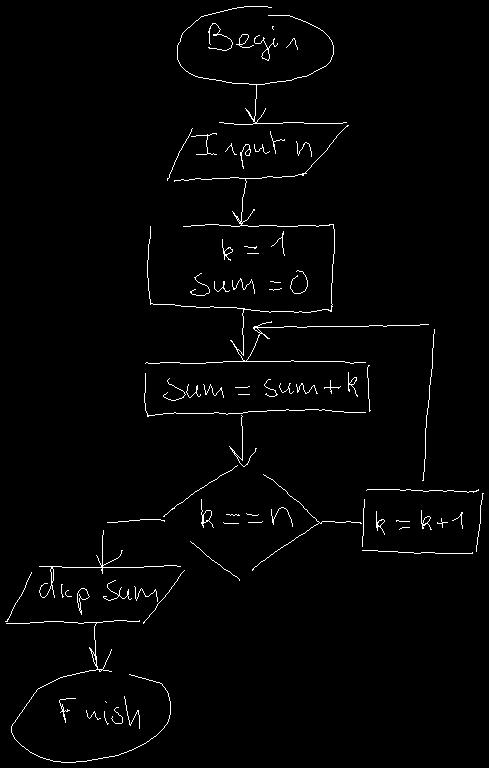 Begin
Input n
k = 1
sum = 0
sum = sum + k
k == n
k = k + 1
disp sum
Finish